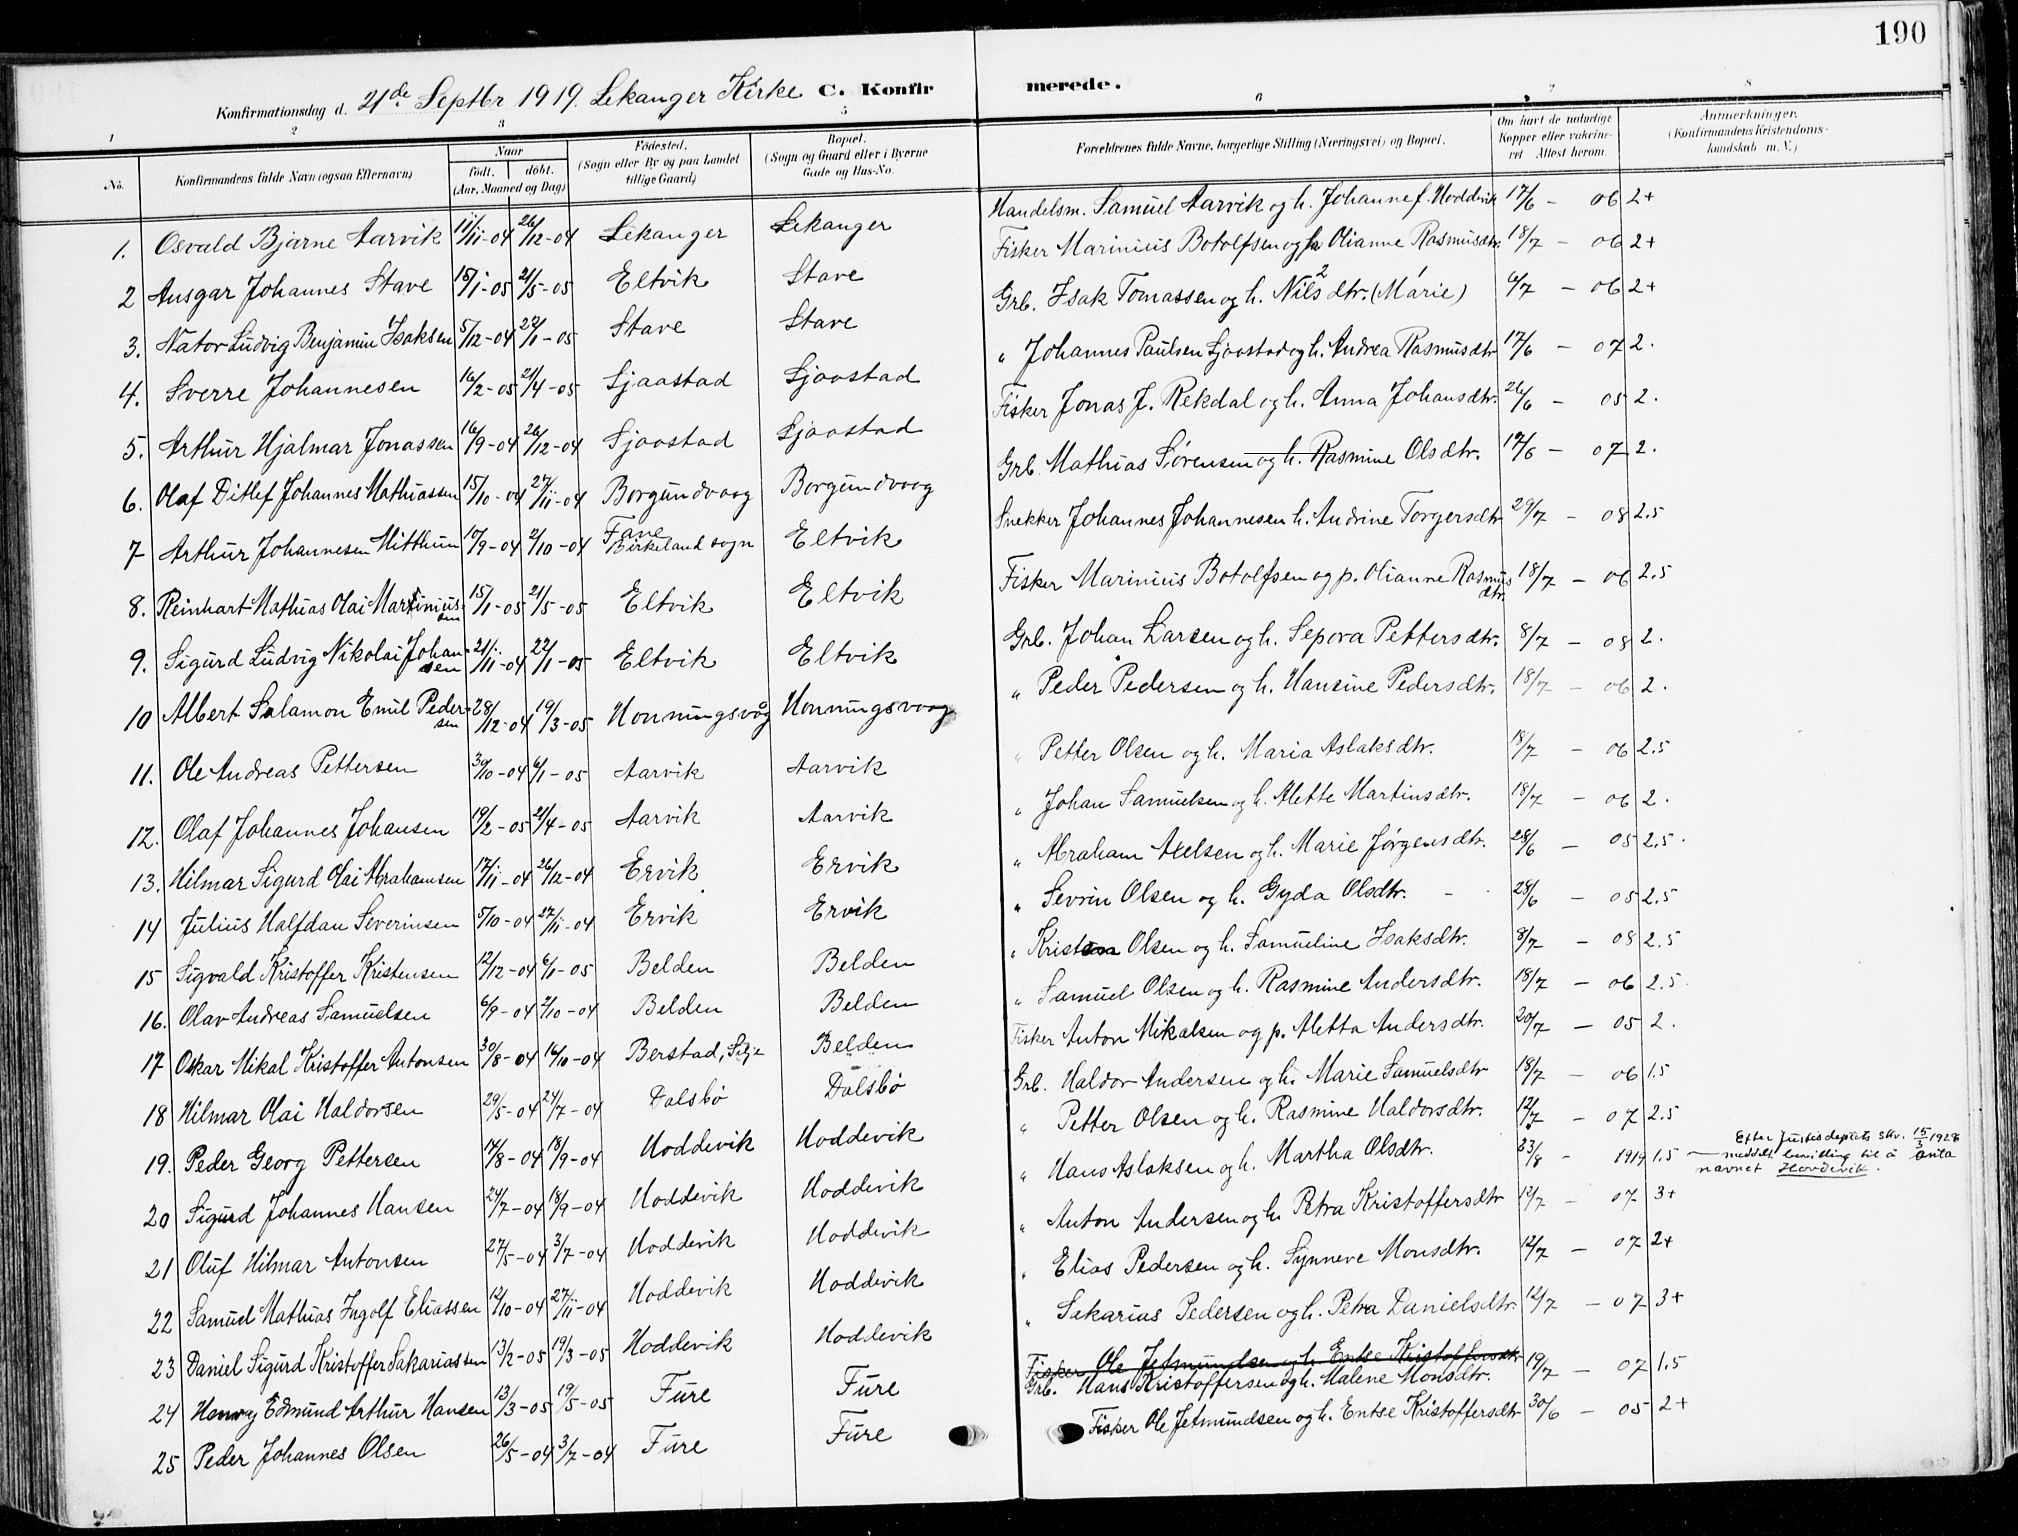 190
Konfirmationsdag d. 21de Septbr 1919. Lekanger Kirke C. Konfirmerede.
1 2 3 5 6 7 8
No. Konfirmandens fulde Navn (ogsaa Efternavn) Naar født. døbt. (Aar, Maaned og Dag) Fødested. (Sogn eller By og paa Landet tillige Gaard) Bopæl. (Sogn og Gaard eller i Byerne Gade og Hus-No. Forældrenes fulde Navne, borgerlige Stilling (Næringsvei) og Bopæl. Om havt de naturlige Kopper eller vakcineret Attest herom. Anmærkninger. (Konfirmandens Kristendomskundskab m. V.)
1. Osvald Bjarne Aarvik 11/11-04 26/12-04 Lekanger Lekanger Handelsm. Samuel Aarvik og h. Johanne f. Hoddevik 17/6 - 06 2+
2 Ansgar Johannes Stave 15/1-05 21/5-05 Eltvik Stave Fisker Marinius Botolfsen og Olianne Rasmusdtr. 18/7 - 06 2+
3. Nator Ludvig Benjamin Isaksen 5/12-04 22/1-05 Stave Stave Grb. Isak Tomassen og h. Nilsdtr. (Marie) 4/7 - 06 2+
4. Sverre Johannesen 16/2-05 21/4-05 Sjaastad Sjaastad " Johannes Paulsen Sjaastad og h. Andrea Rasmusdtr 17/6 - 07 2.
5. Arthur Hjalmar Jonassen 16/9-04 26/12-04 Sjaastad Sjaastad Fisker Jonas J. Rekdal og h. Anna Johansdtr. 26/6 - 05 2.
6. Olaf Ditlef Johannes Mathiassen 15/10-04 27/11-04 Borgundvaag Borgundvaag Grb. Mathias Sørensen og h. Rasmine Olsdtr. 17/6 - 07 2.
7 Arthur Johannesen Mitthun 10/9-04 2/10-04 Fane Birkeland sogn Eltvik Snekker Johannes Johannesen h. Andrine Torgersdtr 29/7 - 08 2.5
8. Reinhart Mathias Olai Mariniussen 15/1-05 21/5-05 Eltvik Eltvik Fisker Marinius Botolfsen og p. Olianne Rasmusdtr. 18/7 - 06 2.5
9. Sigurd Ludvig Nikolai Johansen 21/11-04 22/1-05 Eltvik Eltvik Grb. Johan Larsen og h. Sepora Pettersdtr. 8/7 - 08 2.
10 Albert Salamon Emil Pedersen 28/12-04 19/3-05 Honningsvåg Honningsvaag " Peder Pedersen og h. Hansine Pedersdtr. 18/7 - 06 2.
11. Ole Andreas Pettersen 30/10-04 6/1-05 Aarvik Aarvik " Petter Olsen og h. Maria Aslaksdtr. 18/7 - 06 2.5
12. Olaf Johannes Johansen 19/2-05 21/4-05 Aarvik Aarvik " Johan Samuelsen og h. Alette Martinsdtr. 18/7 - 06 2.
13. Hilmar Sigurd Olai Abrahamsen 17/11-04 26/12-04 Ervik Ervik " Abraham Axelsen og h. Marie Jørgensdtr. 28/6 - 05 2.5.
14 Julius Halfdan Severinsen 5/10-04 27/11-04 Ervik Ervik " Sevrin Olsen og h. Gyda Olsdtr. - 28/6 - 05 2.5
15 Sigvald Kristoffer Kristensen 12/12-04 6/1-05 Belden Belden " Kristen Olsen og h. Samueline Isaksdtr. 8/7 - 08 2.5
16. Olav Andreas Samuelsen 6/9-04 2/10-04 Belden Belden " Samuel Olsen og h. Rasmine Andersdtr. 18/7 - 06 2.5.
17 Oskar Mikal Kristoffer Antonsen 30/8-04 16/10-04 Berstad, Selje Belden Fisker Anton Mikalsen og p. Aletta Andersdtr. 20/7 - 05 2.
18 Hilmar Olai Haldorsen 29/5-04 24/7-04 Dalsbø Dalsbø Grb. Haldor Andersen og h. Marie Samuelsdtr 18/7 - 06 1.5
19. Peder Georg Pettersen 14/8-04 18/9-04 Hoddevik Hoddevik " Petter Olsen og h. Rasmine Haldorsdtr. 12/7 - 07 2.5
20 Sigurd Johannes Hansen 24/7-04 18/9-04 Hoddevik Hoddevik " Hans Aslaksen og h. Martha Olsdtr. 23/8 - 1919 1.5 Efter Justisdeptets skr. 15/3 1928 meddelt bevilling til å anta navnet Hovdevik.
21 Oluf Hilmar Antonsen 27/5-04 3/7-04 Hoddevik Hoddevik " Anton Andersen og h. Petra Kristoffersdtr 12/7 - 07 3+
22 Samuel Mathias Ingolf Eliassen 12/10-04 27/11-04 Hoddevik Hoddevik " Elias Pedersen og h. Synneve Monsdtr. 12/7 - 07 2+
23 Daniel Sigurd Kristoffer Sakariassen 13/2-05 19/3-05 Hoddevik Hoddevik " Sekarias Pedersen og h. Petra Danielsdtr. 12/7 - 07 3+
Fisker Ole Jetmundsen og h. Entse Kristoffersdtr
24 Henry Edmund Arthur Hansen 13/3-05 19/5-05 Fure Fure Grb. Hans Kristoffersen og h. Malene Monsdtr. 19/7 - 07 1.5
25 Peder Johannes Olsen 26/5-04 3/7-04 Fure Fure Fisker Ole Jetmundsen og h. Entse Kristoffersdtr 30/6 - 05 2+